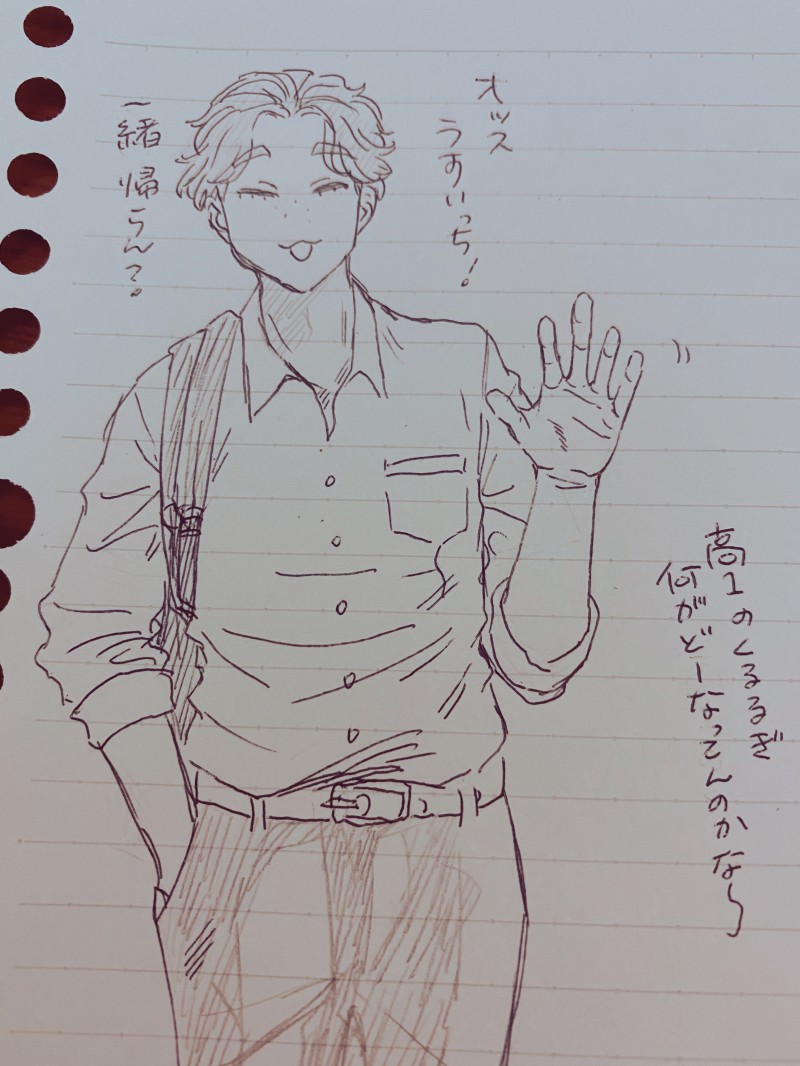 オッス
うすいっち!
一緒帰らん?
高1のくるるぎ
何がどーなってんのかな〜